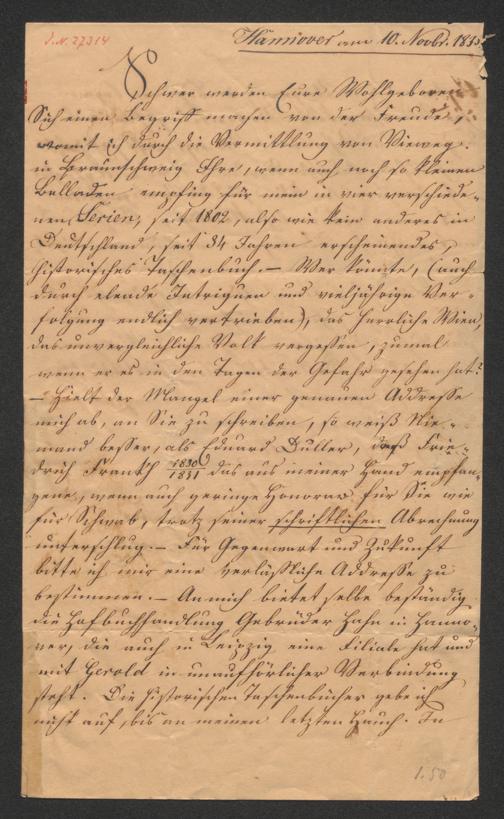 J. N. 27314
Hannover am 10. Novbr. 1835
Schwer werden Eure Wohlgeboren
Sich einen Begriff machen von der Freude,
womit ich durch die Vermittlung von Vieweg
in Braunschweig Ihre, wenn auch noch so kleinen
Balladen empfing für mein in vier verschiede-
nen Serien, seit 1802, also wie kein anderes in
Deutschland, seit 34 Jahren erscheinendes,
historisches Taschenbuch. – Wer könnte, (auch
durch elende Intriguen und vieljährige Ver-
folgung endlich vertrieben), das herrliche Wien,
das unvergleichliche Volk vergessen, zumal
wenn er es in den Tagen der Gefahr gesehen hat?
– Hielt der Mangel einer genauen Addresse
mich ab, an Sie zu schreiben, so weiß Nie-
mand besser, als Eduard Duller, daß Frie-
drich Franckh 1830/1831 das aus meiner Hand empfan-
gene, wenn auch geringe Honorar für Sie wie
für Schwab, trotz seiner schriftlichen Abrechnung
unterschlug. – Für Gegenwart und Zukunft
bitte ich mir eine verläßliche Addresse zu
bestimmen. – An mich bietet selbe beständig
die Hofbuchhandlung Gebrüder Hahn in Hanno-
ver, die auch in Leipzig eine Filiale hat und
mit Gerold in unaufhörlicher Verbindung
steht. Die historischen Taschenbücher gebe ich
nicht auf, bis an meinen letzten Hauch. In
1.50